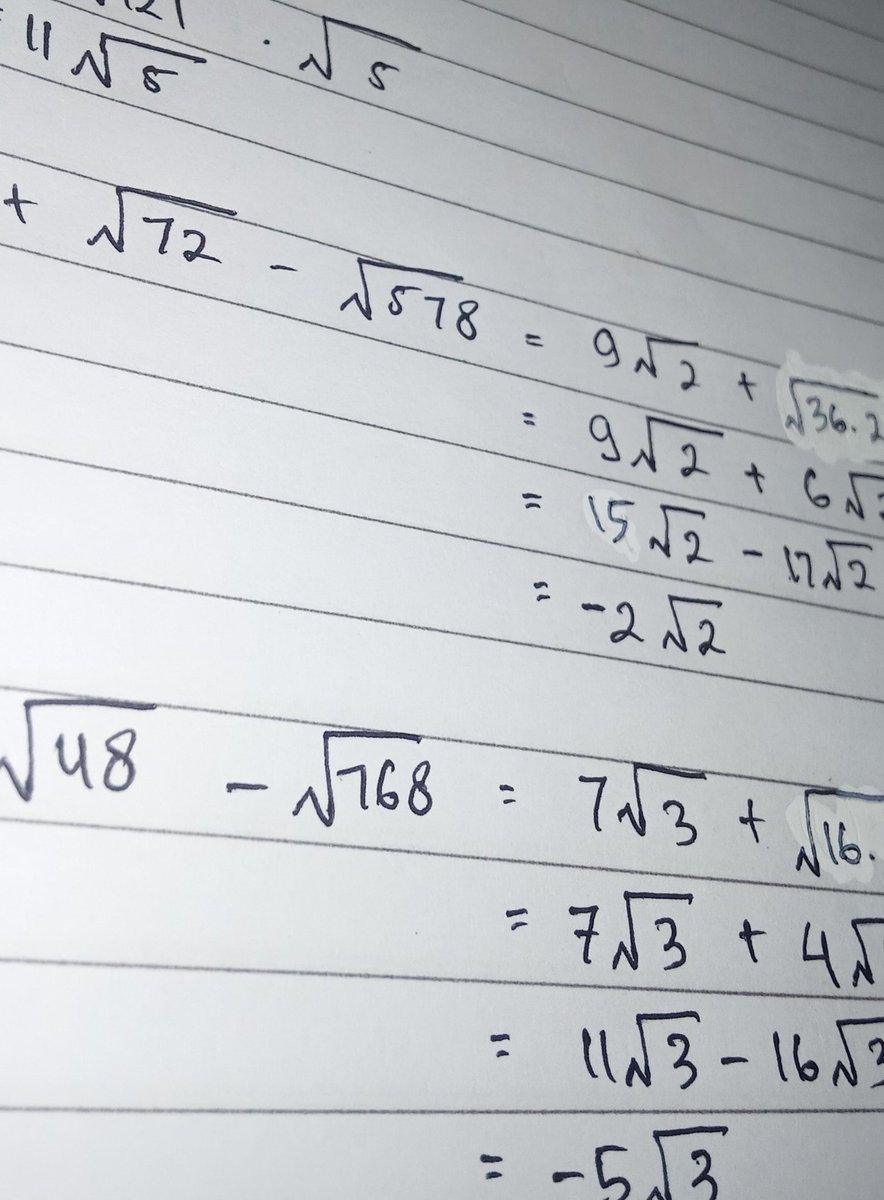 = 11 √5 · √5
+ √72 - √578 = 9√2 + √36.2
= 9√2 + 6√
= 15√2 - 17√2
= -2√2
√48 - √768 = 7√3 + √16.
= 7√3 + 4√
= 11√3 - 16√3
= -5√3